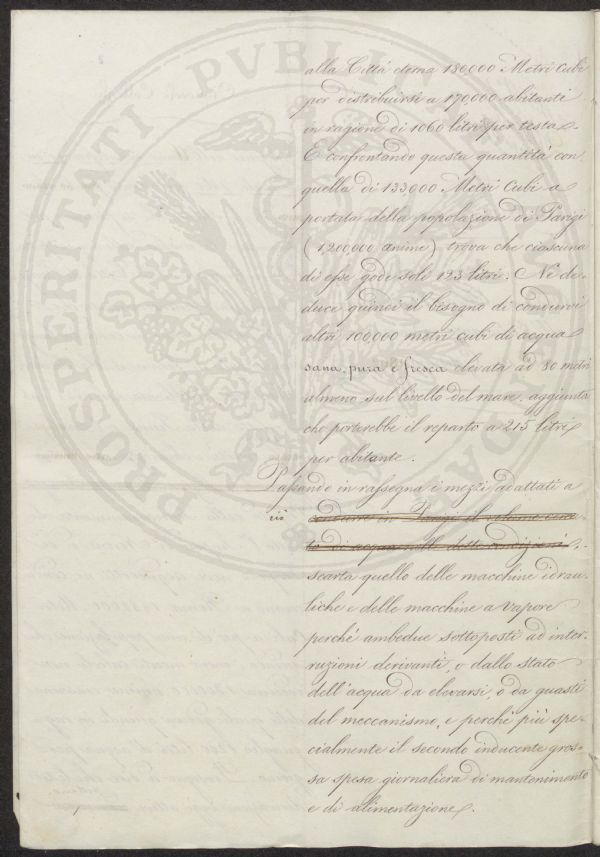 alla Città eterna 180,000 Metri Cubi
per distribuirsi a 170,000 abitanti
in ragione di 1060 litri per testa.
E confrontando questa quantità con
quella di 133000 Metri Cubi a
portata della popolazione di Parigi
(1,200,000 anime) trova che ciascuna
di esse gode soli 123 litri. Ne de-
duce quindi il bisogno di condurvi
altri 100000 metri cubi di acqua
sana, pura e fresca elevata ad 80 metri
almeno sul livello del mare, aggiunta
che porterebbe il reparto a 215 litri
per abitante.
Passando in rassegna i mezzi adattati a
ciò condurre in Parigi il volume cerca-
to di acqua nelle dette condizioni,
scarta quello delle macchine idrau-
liche e delle macchine a vapore
perché ambedue sottoposti ad inter-
ruzioni derivanti, o dallo stato
dell'acqua da elevarsi, o da guasti
del meccanismo, e perché più spe-
cialmente il secondo inducente gros-
sa spesa giornaliera di mantenimento
e di alimentazione.
PROSPERITATI PVBLI